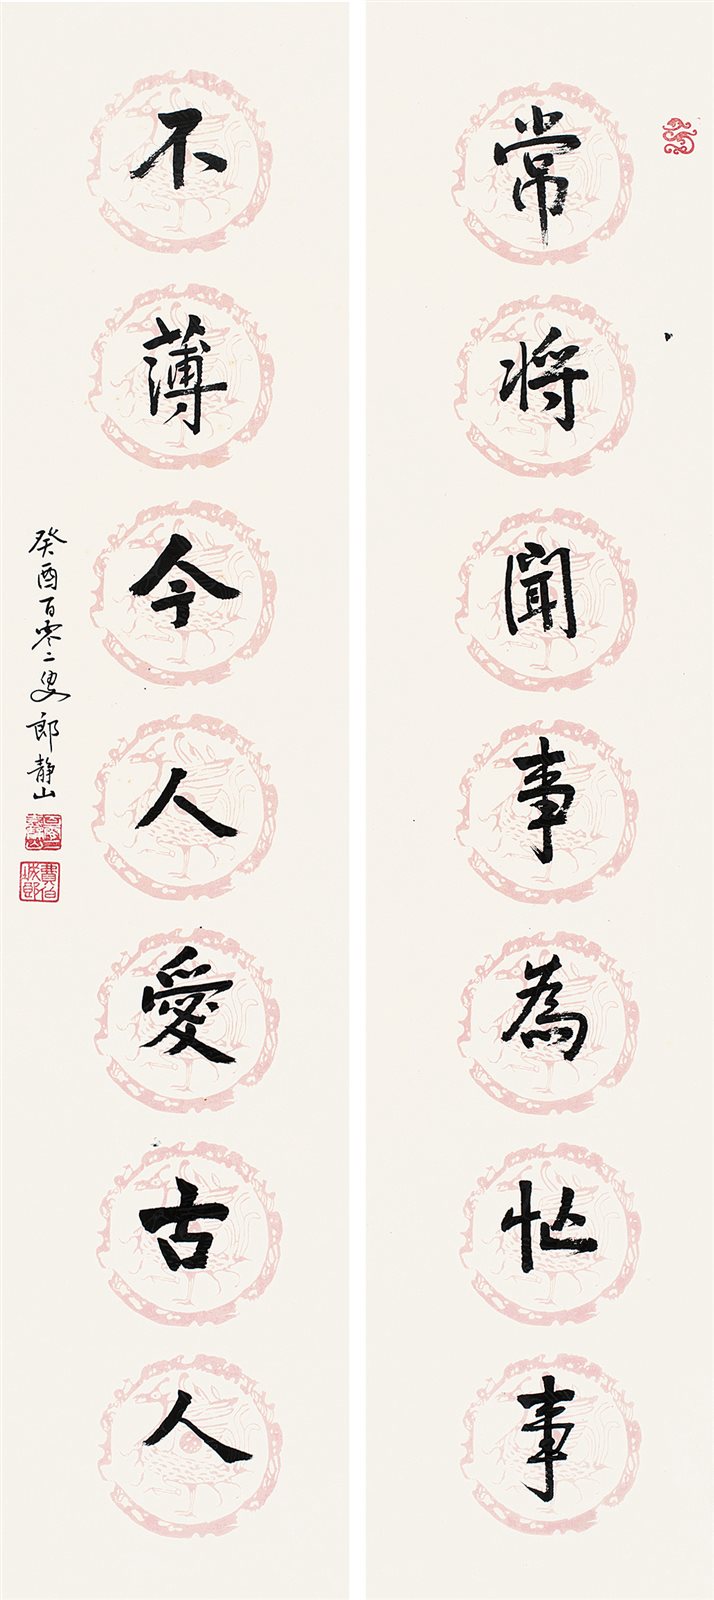 常将聞事為忙事
不薄今人愛古人
癸酉百零二叟郎静山